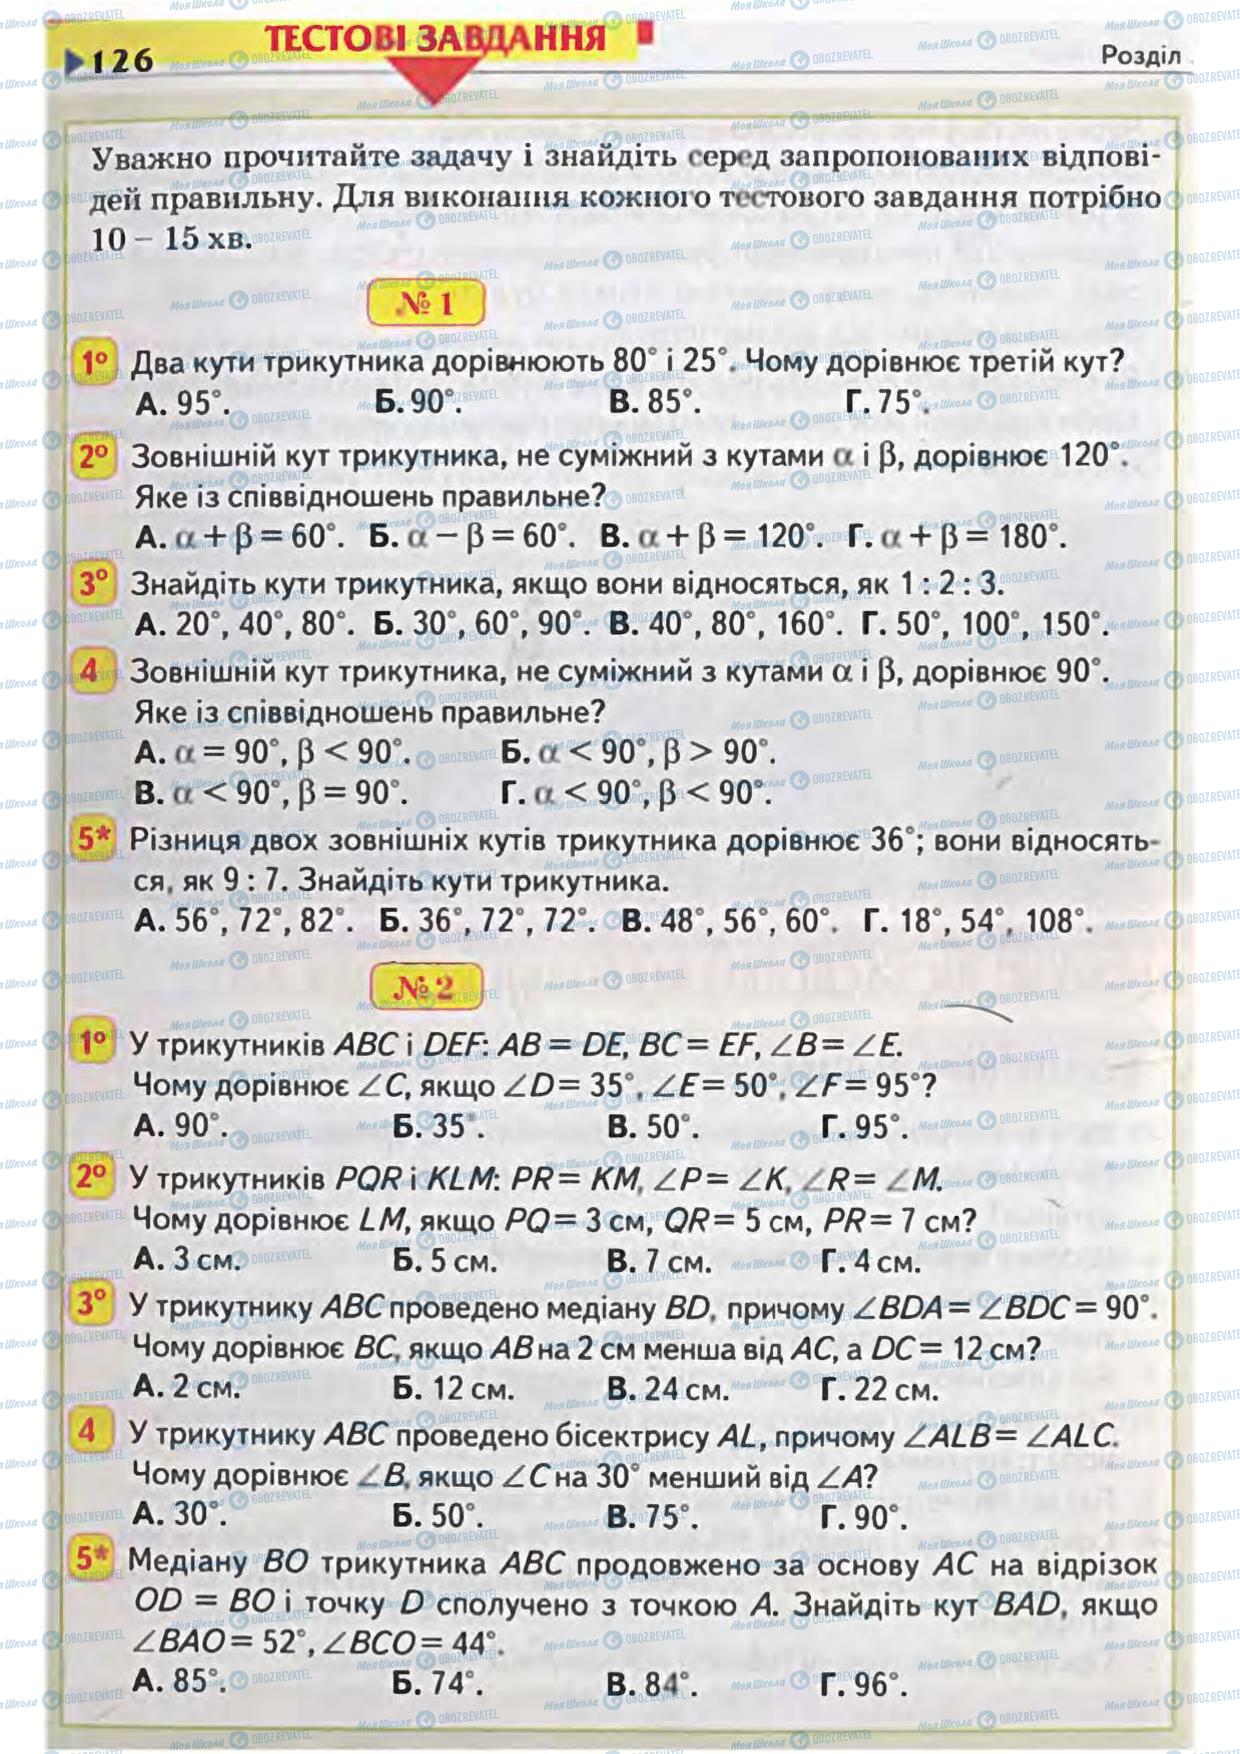 126
ТЕСТОВІ ЗАВДАННЯ
Розділ
Уважно прочитайте задачу і знайдіть серед запропонованих відпові-
дей правильну. Для виконання кожного тестового завдання потрібно
10 – 15 хв.
№ 1
1° Два кути трикутника дорівнюють 80° і 25°. Чому дорівнює третій кут?
А. 95°. Б. 90°. В. 85°. Г. 75°.
2° Зовнішній кут трикутника, не суміжний з кутами α і β, дорівнює 120°.
Яке із співвідношень правильне?
А. α + β = 60°. Б. α – β = 60°. В. α + β = 120°. Г. α + β = 180°.
3° Знайдіть кути трикутника, якщо вони відносяться, як 1 : 2 : 3.
А. 20°, 40°, 80°. Б. 30°, 60°, 90°. В. 40°, 80°, 160°. Г. 50°, 100°, 150°.
4 Зовнішній кут трикутника, не суміжний з кутами α і β, дорівнює 90°.
Яке із співвідношень правильне?
А. α = 90°, β < 90°. Б. α < 90°, β > 90°.
В. α < 90°, β = 90°. Г. α < 90°, β < 90°.
5* Різниця двох зовнішніх кутів трикутника дорівнює 36°; вони відносять-
ся, як 9 : 7. Знайдіть кути трикутника.
А. 56°, 72°, 82°. Б. 36°, 72°, 72°. В. 48°, 56°, 60°. Г. 18°, 54°, 108°.
№ 2
1° У трикутників ABC і DEF: AB = DE, BC = EF, ∠B = ∠E.
Чому дорівнює ∠C, якщо ∠D = 35°, ∠E = 50°, ∠F = 95°?
А. 90°. Б. 35°. В. 50°. Г. 95°.
2° У трикутників PQR і KLM: PR = KM, ∠P = ∠K, ∠R = ∠M.
Чому дорівнює LM, якщо PQ = 3 см, QR = 5 см, PR = 7 см?
А. 3 см. Б. 5 см. В. 7 см. Г. 4 см.
3° У трикутнику ABC проведено медіану BD, причому ∠BDA = ∠BDC = 90°.
Чому дорівнює BC, якщо AB на 2 см менша від AC, а DC = 12 см?
А. 2 см. Б. 12 см. В. 24 см. Г. 22 см.
4 У трикутнику ABC проведено бісектрису AL, причому ∠ALB = ∠ALC.
Чому дорівнює ∠B, якщо ∠C на 30° менший від ∠A?
А. 30°. Б. 50°. В. 75°. Г. 90°.
5* Медіану BO трикутника ABC продовжено за основу AC на відрізок
OD = BO і точку D сполучено з точкою A. Знайдіть кут BAD, якщо
∠BAO = 52°, ∠BCO = 44°.
А. 85°. Б. 74°. В. 84°. Г. 96°.